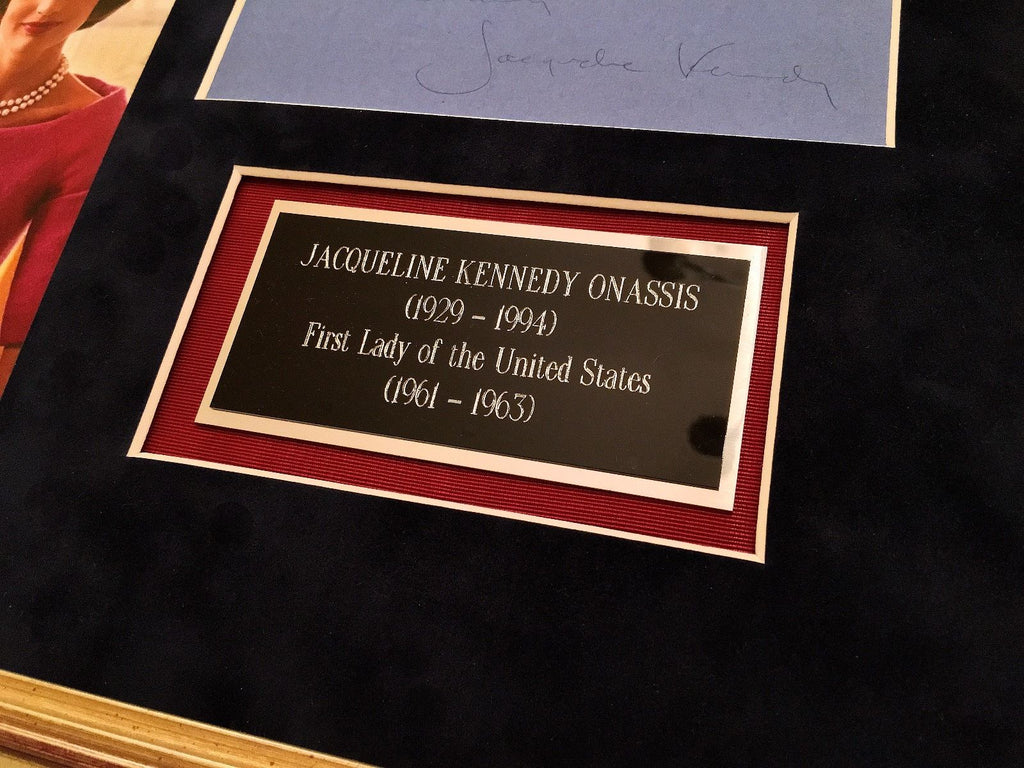 Jacqueline Kennedy
JACQUELINE KENNEDY ONASSIS
(1929 – 1994)
First Lady of the United States
(1961 – 1963)